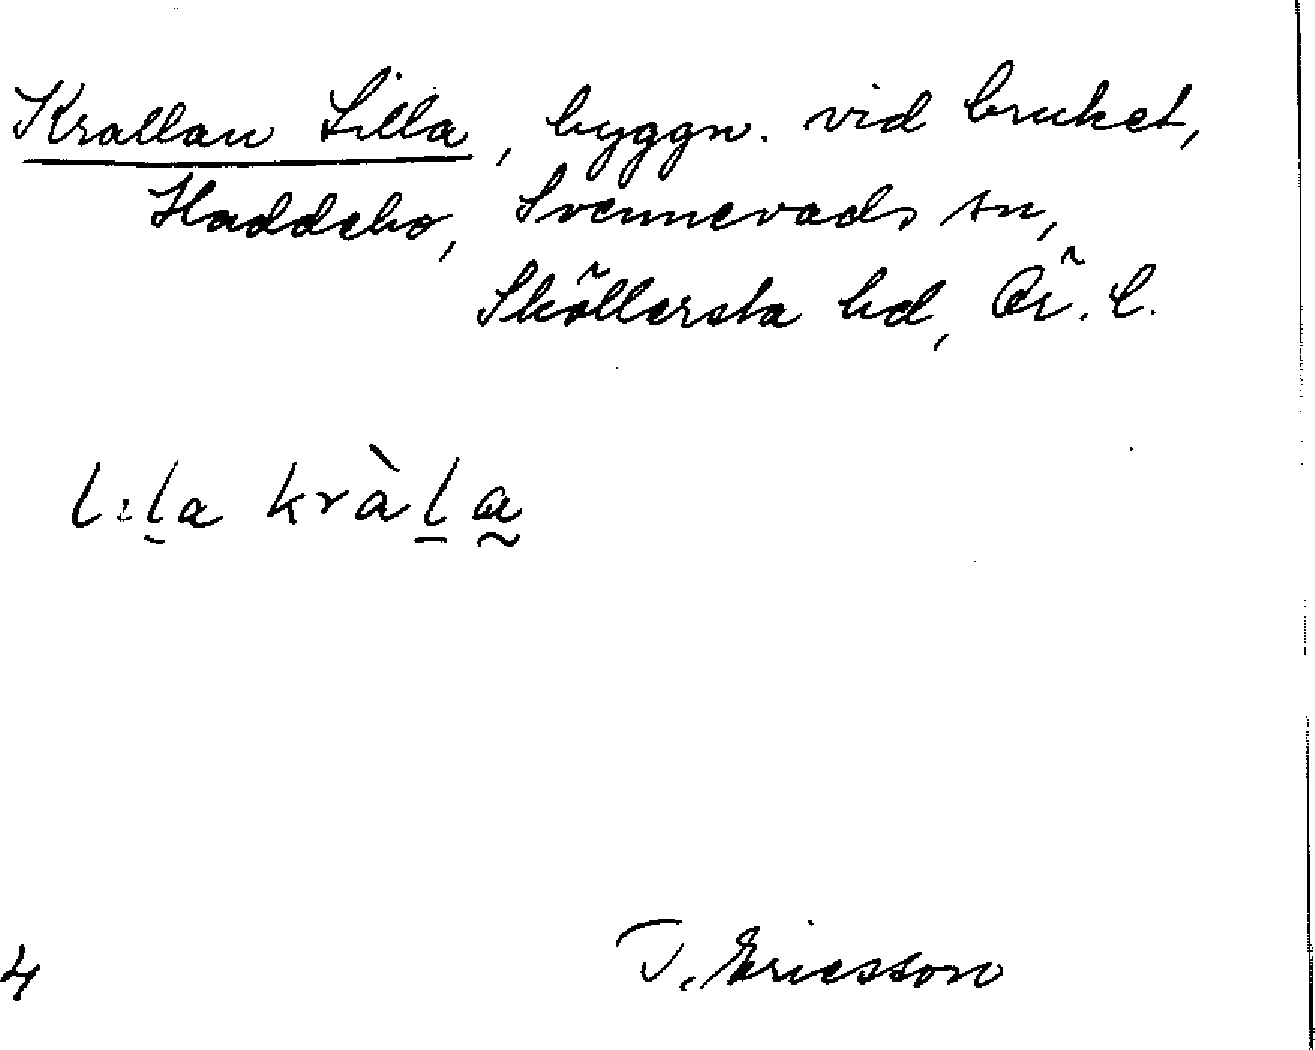 Krallan Lilla, byggn. vid bruket,
Haddebo, Svennevads sn,
Sköllersta hd, Ör. l.
l:la kràla
4
T. Ericsson